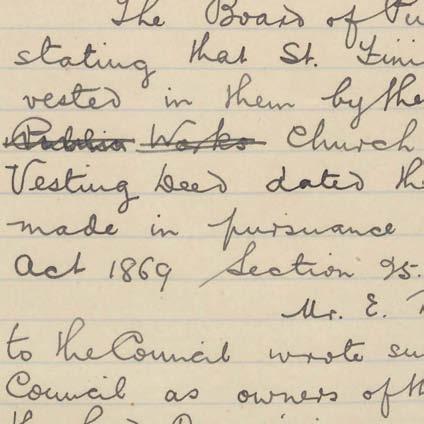 The Board of Pu
stating that St. Fini
vested in them by the
Public Works Church
Vesting Deed dated the
made in pursuance
Act 1869 Section 25.
Mr. E.
to the Council wrote su
Council as owners of th